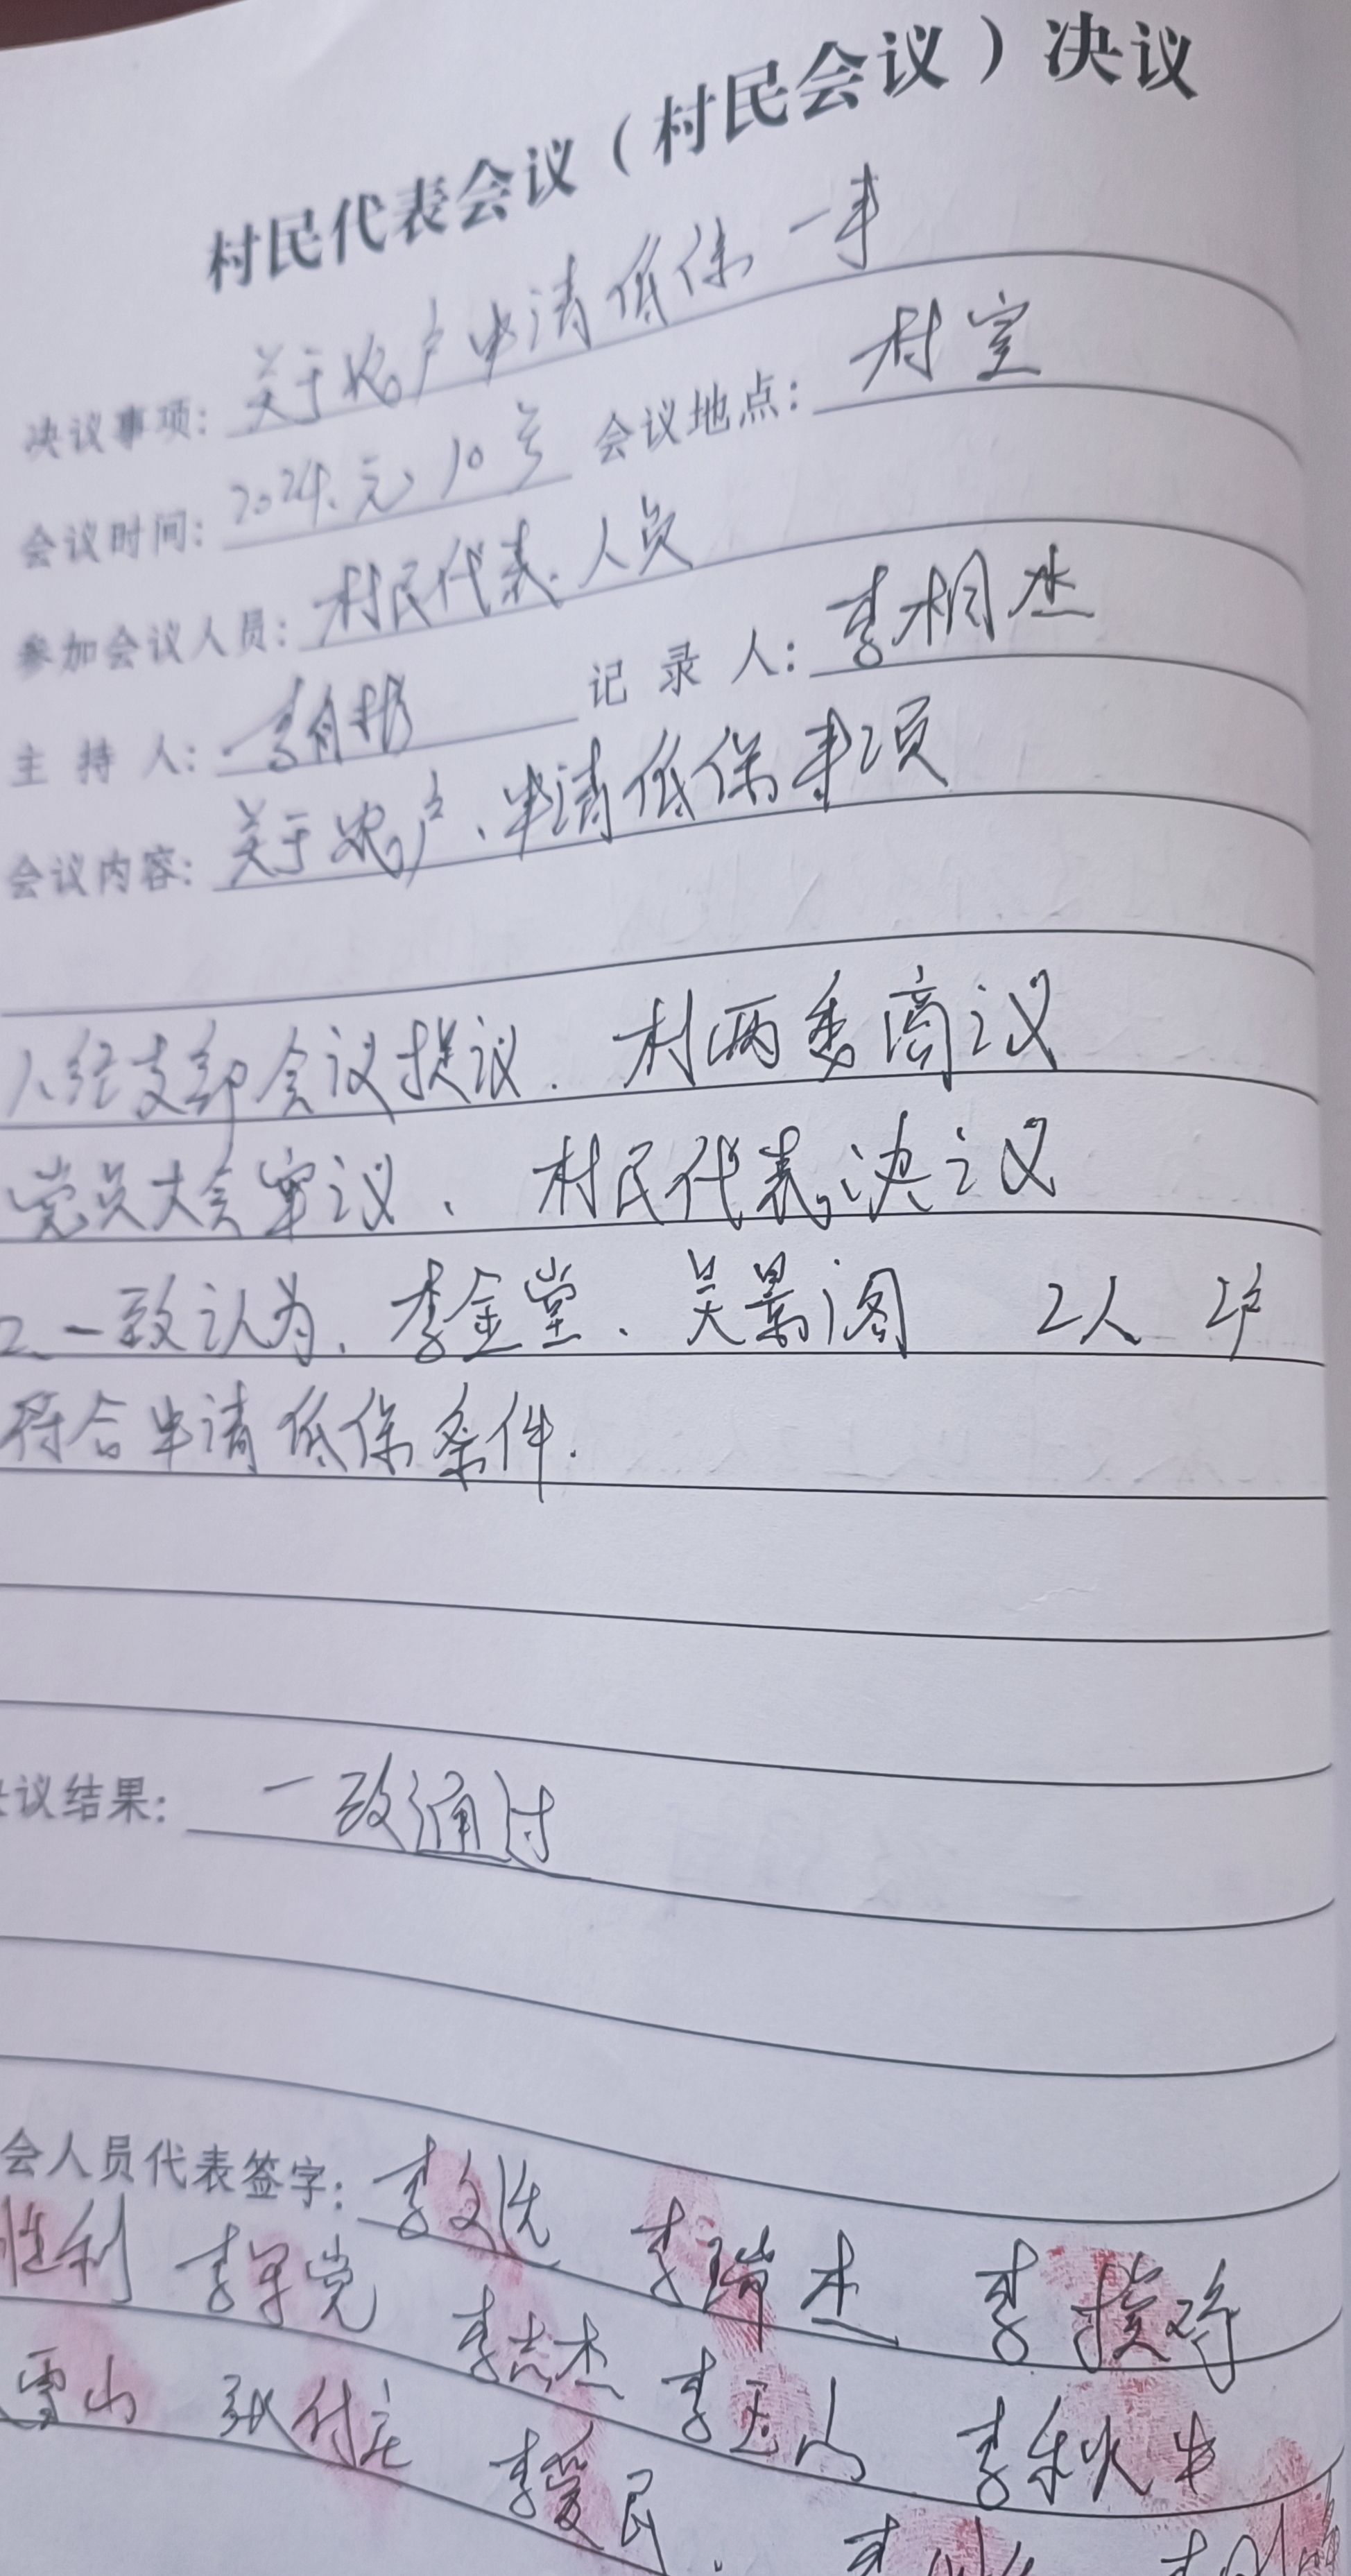 村民代表会议（村民会议）决议
决议事项：关于农户申请低保一事
会议时间：2024.元.10号 会议地点：村室
参加会议人员：村民代表.人员
主持人：李有 记录人：李相杰
会议内容：关于农户、申请低保事项
1、经支部会议提议．村两委商议
党员大会审议、村民代表决议
2、一致认为、李金堂、吴景阁 2人 2户
符合申请低保条件.
议结果：一致通过
会人员代表签字：李文 李瑞杰 李
胜利 李军党 李志杰 李玉山 李秋生
雪山 张付庄 李爱民